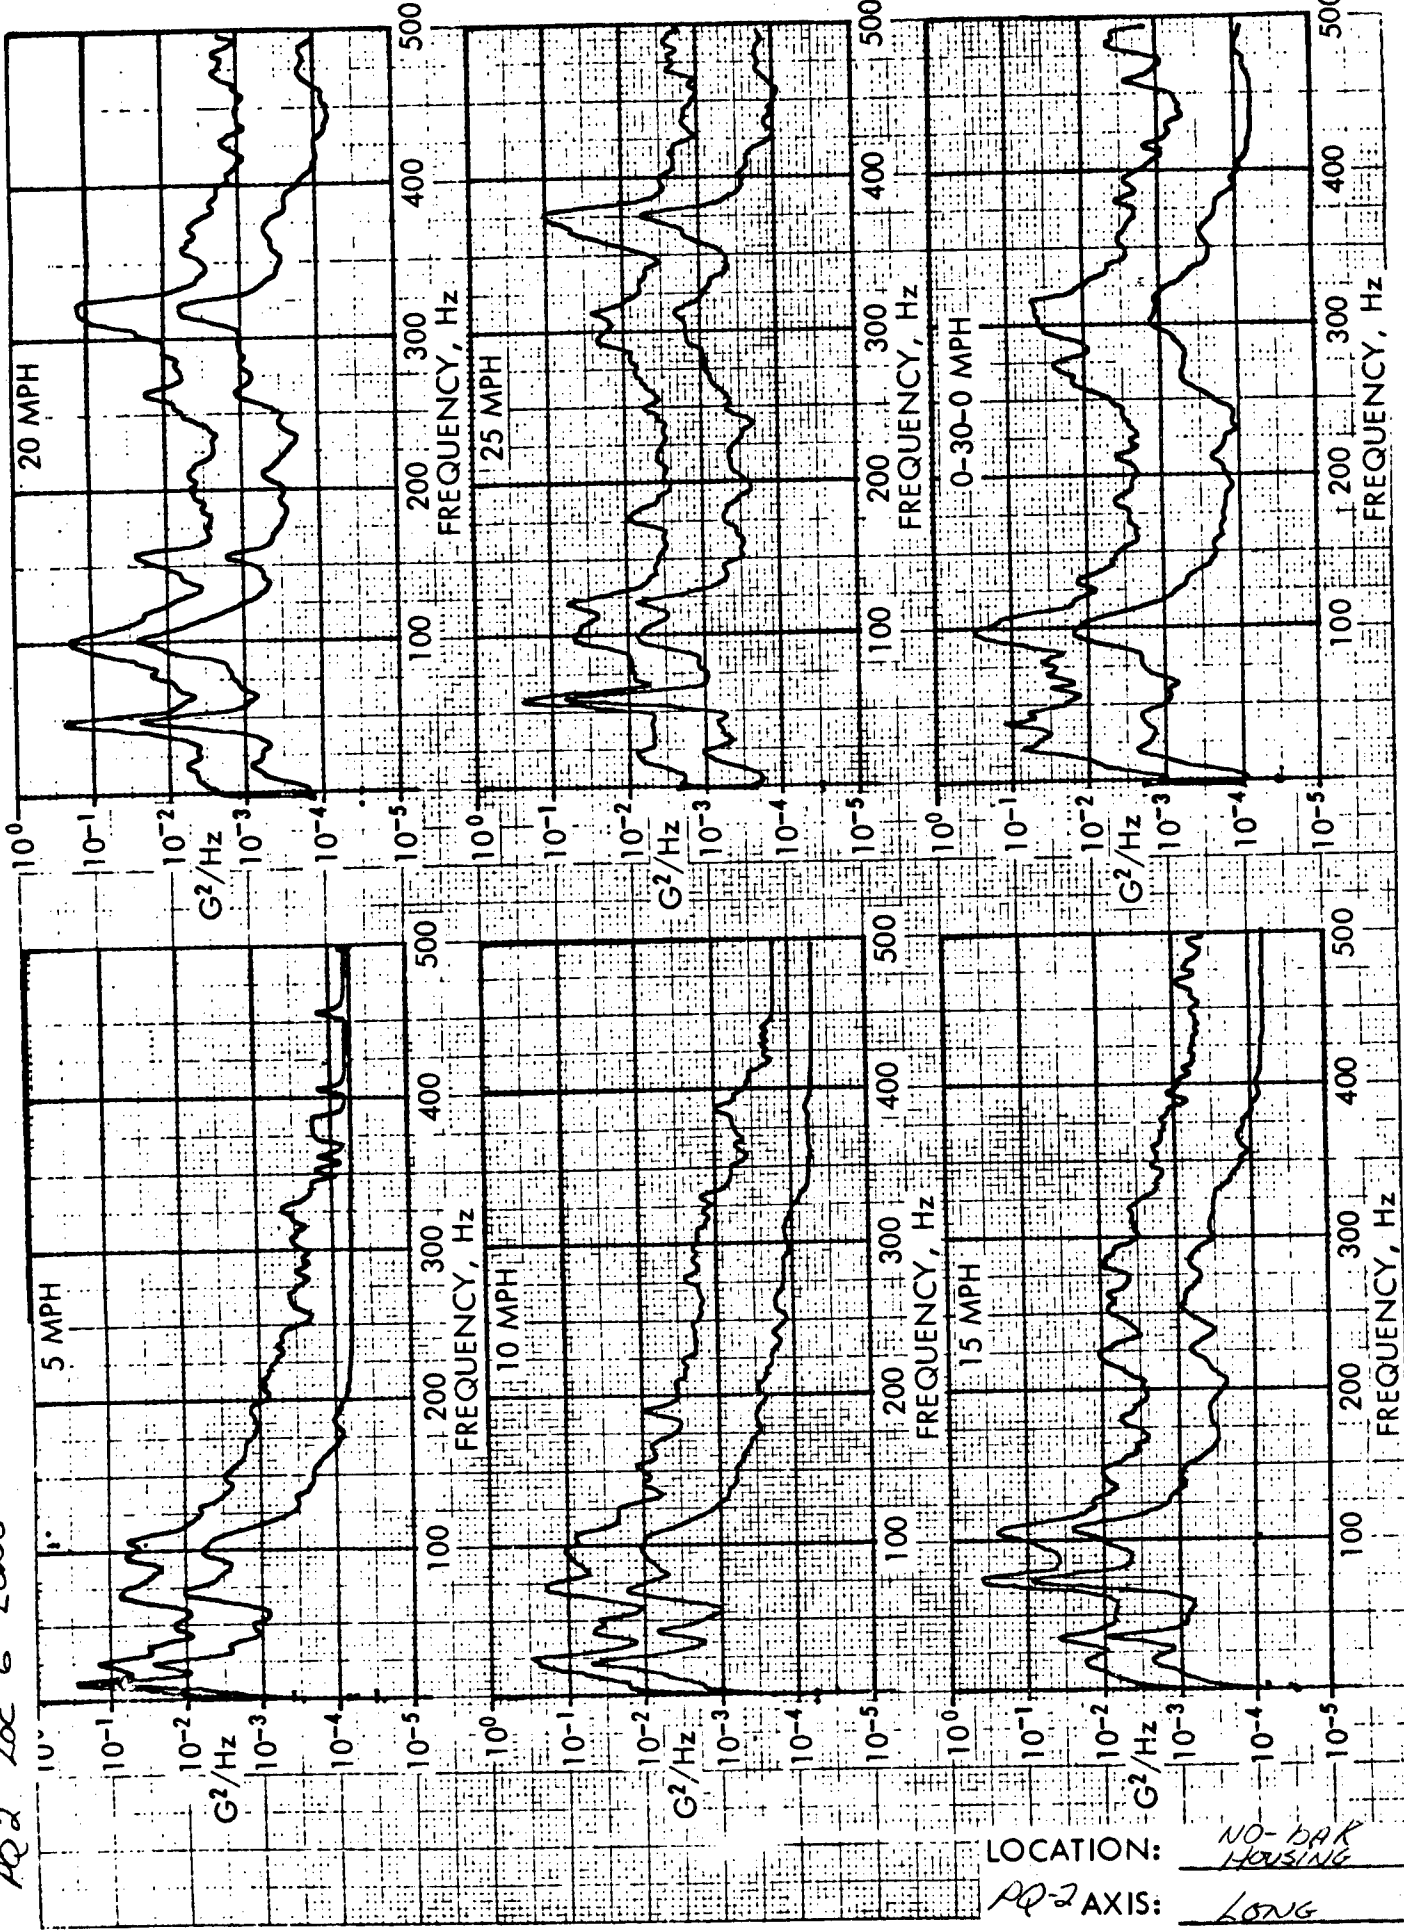 PQ 2 LOC 6
5 MPH
10⁻¹
10⁻²
G²/Hz
10⁻³
10⁻⁴
10⁻⁵
100 200 300 400 500
FREQUENCY, Hz
10 MPH
10⁰
10⁻¹
10⁻²
G²/Hz
10⁻³
10⁻⁴
10⁻⁵
100 200 300 400 500
FREQUENCY, Hz
15 MPH
10⁰
10⁻¹
10⁻²
G²/Hz
10⁻³
10⁻⁴
10⁻⁵
100 200 300 400 500
FREQUENCY, Hz
20 MPH
10⁰
10⁻¹
10⁻²
G²/Hz
10⁻³
10⁻⁴
10⁻⁵
100 200 300 400 500
FREQUENCY, Hz
25 MPH
10⁰
10⁻¹
10⁻²
G²/Hz
10⁻³
10⁻⁴
10⁻⁵
100 200 300 400 500
FREQUENCY, Hz
0-30-0 MPH
10⁰
10⁻¹
10⁻²
G²/Hz
10⁻³
10⁻⁴
10⁻⁵
100 200 300 400 500
FREQUENCY, Hz
LOCATION: NO-BAK
HOUSING
PQ-2 AXIS: LONG